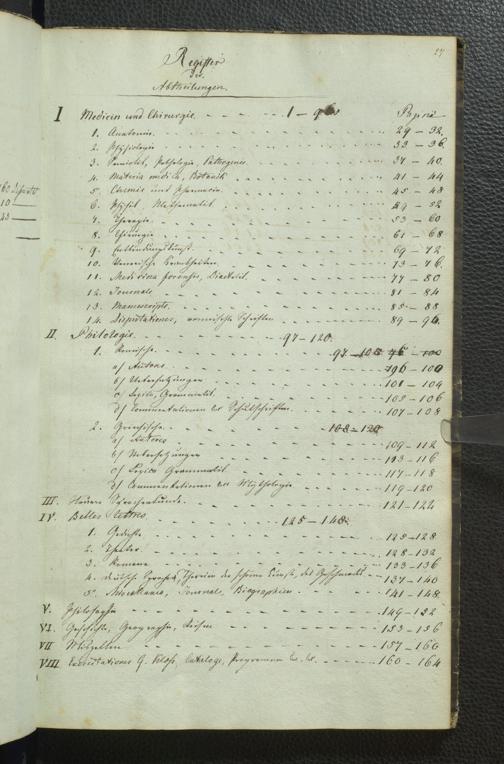 27
Register
der
Abtheilungen.
I Medicin und Chirurgie 1 – 96 Pagina
1. Anatomie. 29 – 32.
2. Physiologie 33 – 36.
3. Pathologie, Pathogenie 37 – 40.
4. Materia medica, Botanik 41 – 44
5. Chemie und Pharmacie. 45 – 48
6. Physik, Mathematik 49 – 52
7. Therapie. 53 – 60
8. Chirurgie 61 – 68
9. Entbindungskunst. 69 – 72
10. Venerische Krankheiten 73 – 76.
11. Medicina forensis, Diaetetik. 77 – 80
12. Journale. 81 – 84
13. Manuscripte. 85 – 88
14. Disputationes, vermischte Schriften 89 – 96.
II. Philologie. 97 – 120.
1. Römische. 97 – 100
a) Autores 100
b) Uebersetzungen 101 – 104
c) Lexica, Grammatik. 105 – 106
d) Commentationen Schulschriften. 107 – 108
2. Griechische. 108 – 120
a) Autores 109 – 112
b) Uebersetzungen 113 – 116
c) Lexica Grammatik 117 – 118
d) Commentationen Mythologie 119 – 120
III. Neuere Sprachenkunde. 121 – 122
IV. Belles Lettres. 125 – 148.
1. Gedichte 125 – 128
2. Theater. 128 – 132
3. Romane 133 – 136
4. deutsche Sprache, Theorien der schönen Künste, des Geschmacks 137 – 140
5. Miscellanea, Journale, Biographien 141 – 148
V. Philosophie 149 – 152
VI. Geschichte, Geographie, Reisen 153 – 156
VII 157 – 160
VIII Cataloge, Programme 160 – 164
60
10
43